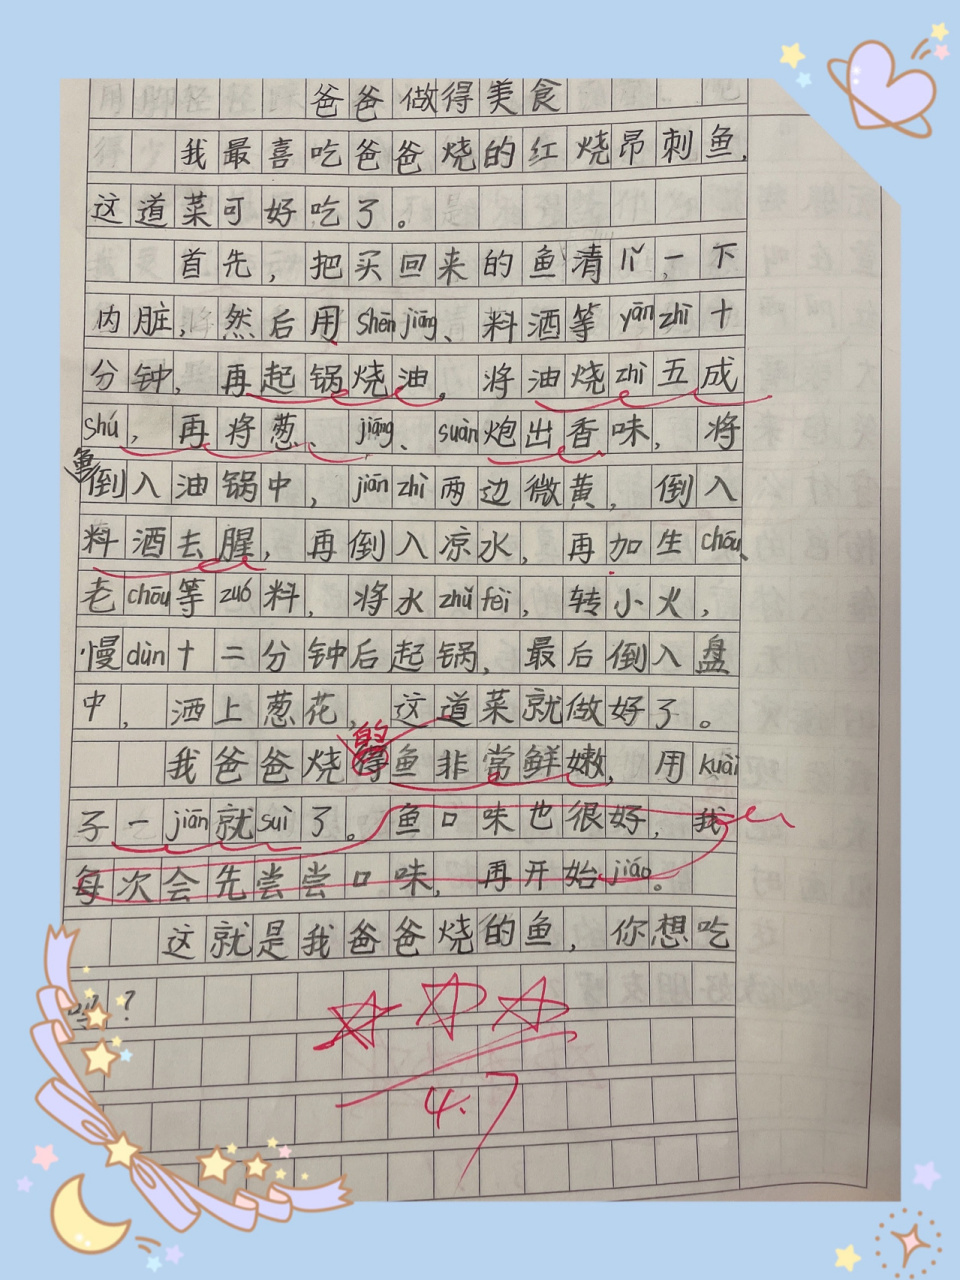 爸爸做得美食
我最喜吃爸爸烧的红烧昂刺鱼,
这道菜可好吃了。
首先，把买回来的鱼清lǐ,一下
内脏，然后用Shēnjiāng、料酒等yānzhì十
分钟，再起锅烧油。将油烧zhì五成
shú，再将葱、jiāng、suàn炮出香味，将
鱼
倒入油锅中，jiānzhì两边微黄，倒入
料酒去腥，再倒入凉水，再加生chōu、
老chōu等zuó料，将水zhǔfèi，转小火，
慢dùn十二分钟后起锅，最后倒入盘
中，洒上葱花，这道菜就做好了。
的
我爸爸烧得鱼非常鲜嫩，用kuài
子一jiān就suì了。鱼口味也很好，我
每次会先尝尝口味，再开始jiáo。
这就是我爸爸烧的鱼，你想吃
吗？
4.7